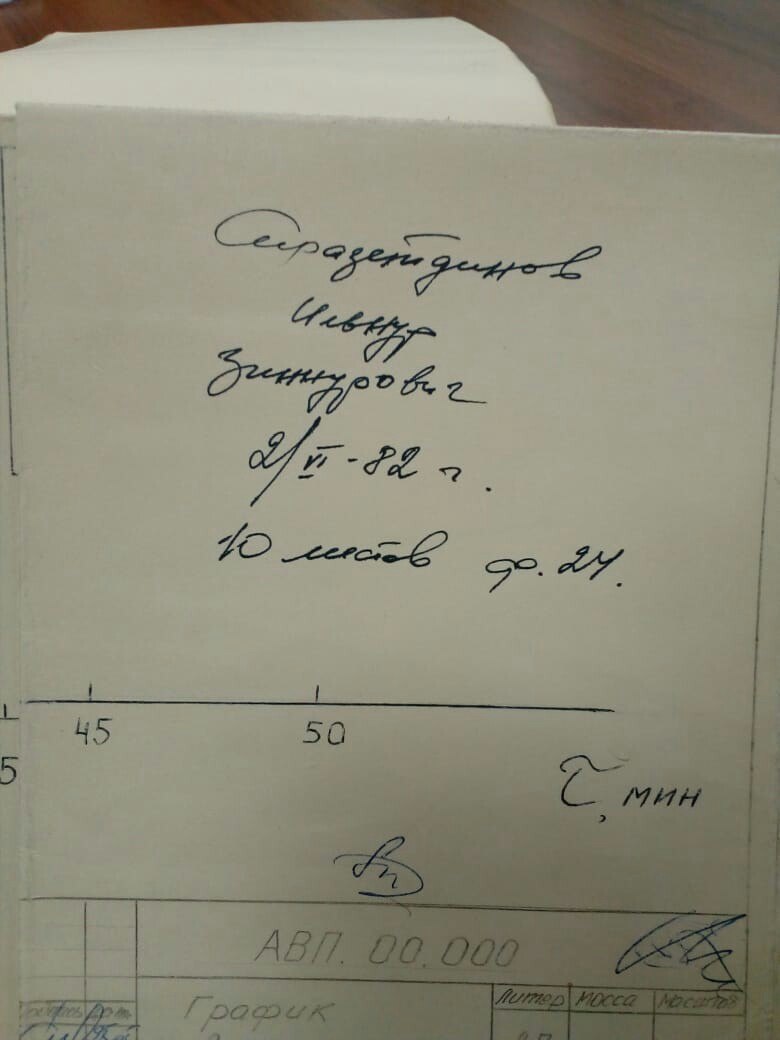 Сиразетдинов
Ильнур
Зиннурович
2/VI-82 г.
10 листов ф. 24.
45 50
5
τ, мин
АВП. 00.000
График
Литер Масса Масштаб